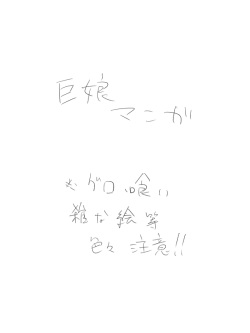 巨娘
マンガ
※ゲロ喰い
雑な絵等
色々注意!!